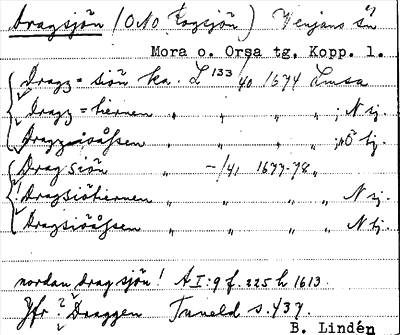 Dragsjön (ONO Kogsjön) Venjans sn
Mora o. Orsa tg, Kopp. l.
Dragz = siön ka. L 133/40 1674 Limsa
Dragz = tiernen " " " ; N ij.
Dragzsiöåhsen " " " ; Ö ij.
Dragsiön " -/41 1677-78 "
! Dragsiötiernen " " " " N ij.
Dragsiöåhsen " " " " N ij.
nordan drag sjön! AI:9 f. 225 h 1613.
Jfr ? Draggen Tuneld s. 437.
B. Lindén